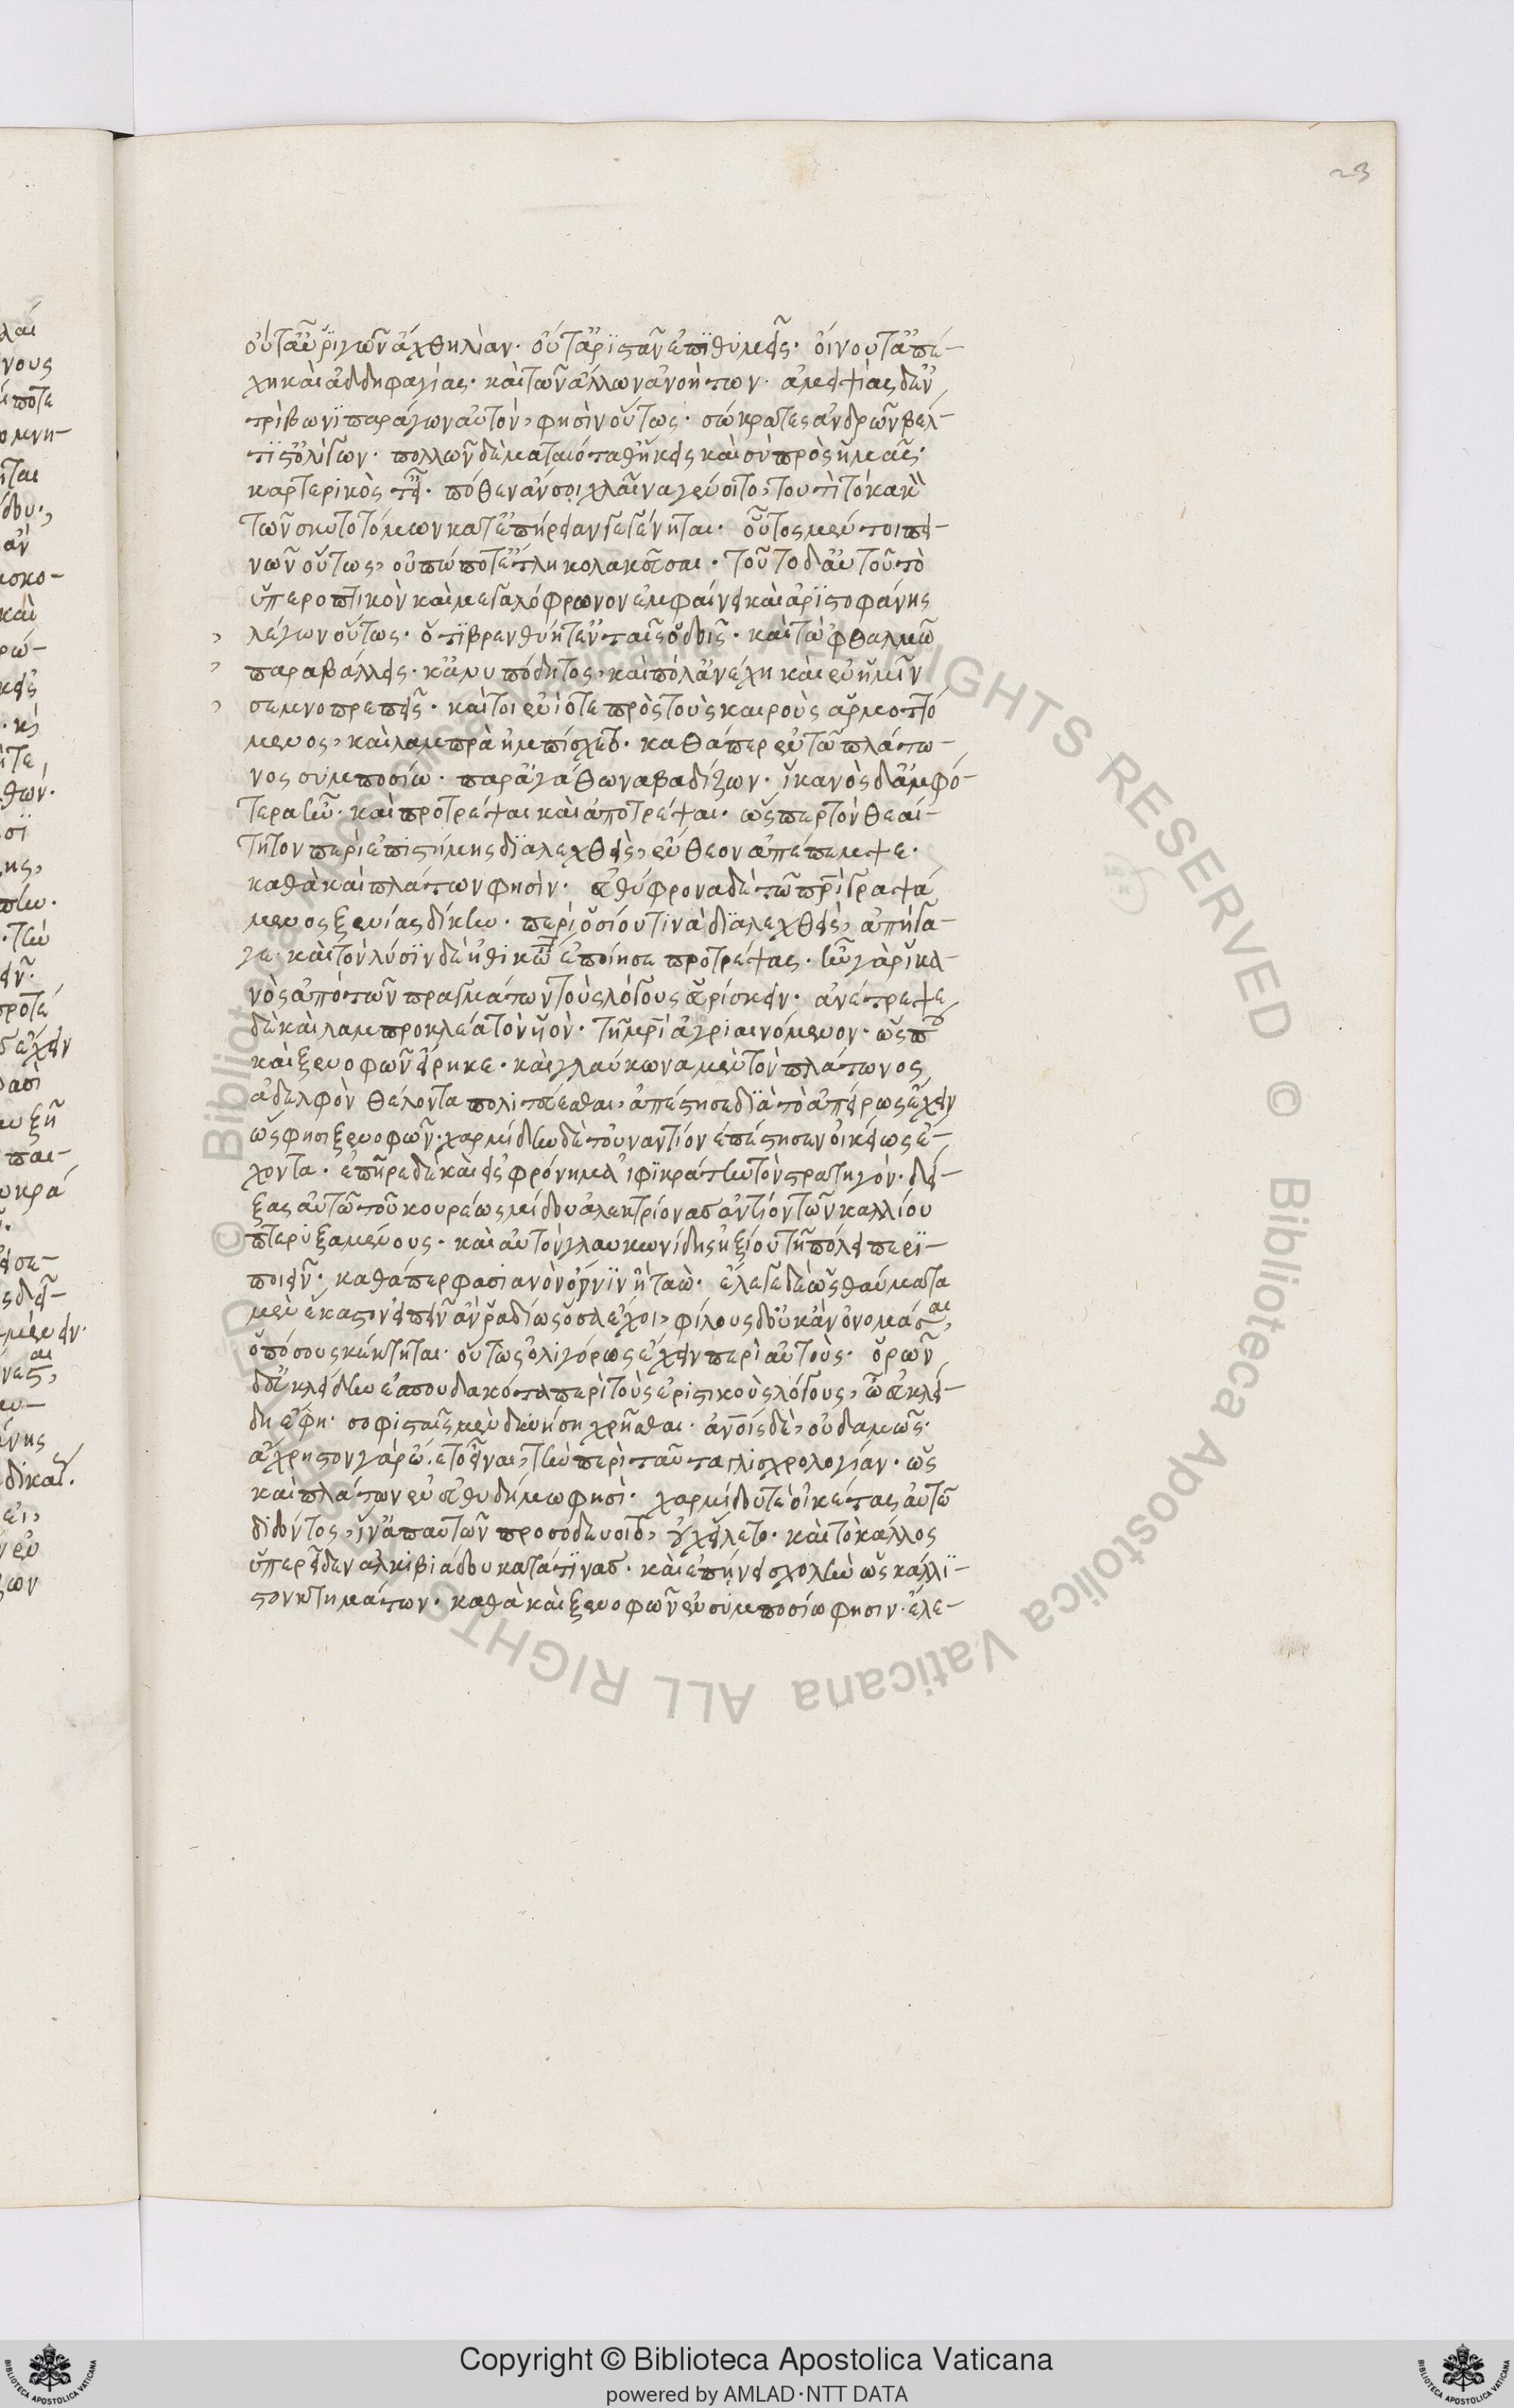 23
οὔτ' αὖ ῥιγῶν ἄχθη λίαν· οὔτ' ἀριστᾶν ἐπιθυμεῖς· οἴνου τ' ἀπέ-
χη καὶ ἀδδηφαγίας· καὶ τῶν ἄλλων ἀνοήτων· ἀμειψίας δ' ἐν
τρίβωνι παράγων αὐτὸν, φησὶν οὕτως· σώκρατες ἀνδρῶν βέλ-
τιστ' ὀλίγων· πολλῶν δὲ ματαιόταθ' ἥκεις καὶ σὺ πρὸς ἡμᾶς·
καρτερικός τ' εἶ· πόθεν ἄν σοι χλαῖνα γένοιτο, τουτὶ τὸ κακὸν
τῶν σκυτοτόμων κατ' ἐπήρειαν γεγένηται· οὗτος μέν τοι πει-
νῶν οὕτως, οὐπώποτ' ἔτλη κολακεῦσαι· τοῦτο δ' αὐτοῦ τὸ
ὑπεροπτικὸν καὶ μεγαλόφρωνον ἐμφαίνει καὶ ἀριστοφάνης
λέγων οὕτως· ὅτι βρενθύη τ' ἐν ταῖς ὁδοῖς· καὶ τὼ φθαλμῶ
παραβάλλεις· κἀνυπόδητος, καὶ πόλ' ἀνέχη καὶ ἐν ἡμῖν
σεμνοπρεπεῖς· καίτοι ἐνίοτε πρὸς τοὺς καιροὺς ἁρμοττό
μενος, καὶ λαμπρὰ ἠμπίσχετο· καθάπερ ἐν τῶ πλάτω-
νος συμποσίω· παρ' ἀγάθωνα βαδίζων· ἱκανὸς δ' ἀμφό-
τερα ἦν· καὶ προτρέψαι καὶ ἀποτρέψαι· ὥσπερ τὸν θεαί-
τητον περὶ ἐπιστήμης διαλεχθεὶς, ἔνθεον ἀπέπεμψε·
καθὰ καὶ πλάτων φησίν· εὐθύφρονα δὲ τῶ πρὶ γραψά
μενος ξενίας δίκην· περὶ ὁσίου τινὰ διαλεχθεὶς, ἀπήγα-
γε· καὶ τὸν λύσιν δὲ ἠθικώτ ἐποίησε προτρέψας· ἦν γὰρ ἱκα-
νὸς ἀπὸ τῶν πραγμάτων τοὺς λόγους εὑρίσκειν· ἀνέτρεψε
δὲ καὶ λαμπροκλέα τὸν υἱὸν· τῆ μρὶ ἀγριαινόμενον· ὥς π
καὶ ξενοφῶν εἴρηκε· καὶ γλαύκωνα μὲν τὸν πλάτωνος
ἀδελφὸν θέλοντα πολιτεύεσθαι, ἀπέστησε διὰ τὸ ἀπείρως ἔχειν
ὥς φησι ξενοφῶν· χαρμίδην δὲ τοὐναντίον ἐπέστησεν οἰκείως ἔ-
χοντα· ἐπῆρε δὲ καὶ εἰς φρόνημα ἰφικράτην τὸν στρατηγόν· δεί-
ξας αὐτῶ τοῦ κουρέως μίδου ἀλεκτρίονας ἀντίον τῶν καλλίου
πτερυξαμένους· καὶ αὐτὸν γλαυκωνίδης ἠξίου τῆ πόλει περι-
ποιεῖν· καθάπερ φασιανὸν ὄρνιν ἢ ταὼ· ἔλεγε δὲ ὡς θαυμαστὰ
μὲν ἕκαστον εἰπεῖν ἂν ῥαδίως ὅσα ἔχοι, φίλους δ' οὐκ ἂν ὀνομάσαι,
ὁπόσους κέκτηται· οὕτως ὀλιγόρως ἔχειν περὶ αὐτούς· ὁρῶν
δ' εὐκλείδην ἐσπουδακότα περὶ τοὺς ἐριστικοὺς λόγους, ὦ εὐκλεί-
δη ἔφη· σοφισταῖς μὲν δυνήση χρῆσθαι· ἀνοις δὲ, οὐδαμῶς·
ἄχρηστον γὰρ ὤετο εἶναι, τὴν περὶ ταῦτα γλισχρολογίαν· ὡς
καὶ πλάτων ἐν εὐθυδήμω φησὶ· χαρμίδου τὲ οἰκέτας αὐτῶ
διδόντος, ἵν' ἀπ' αὐτῶν προσοδεύοιτο, οὐχ εἵλετο· καὶ τὸ κάλλος
ὑπερεῖδεν ἀλκιβιάδου κατά τινας· καὶ ἐπήνει σχολὴν ὡς κάλλι-
στον κτημάτων· καθὰ καὶ ξενοφῶν ἐν συμποσίω φησιν· ἔλε-
© Biblioteca Apostolica Vaticana ALL RIGHTS RESERVED
Copyright © Biblioteca Apostolica Vaticana
powered by AMLAD·NTT DATA
BIBLIOTECA APOSTOLICA VATICANA